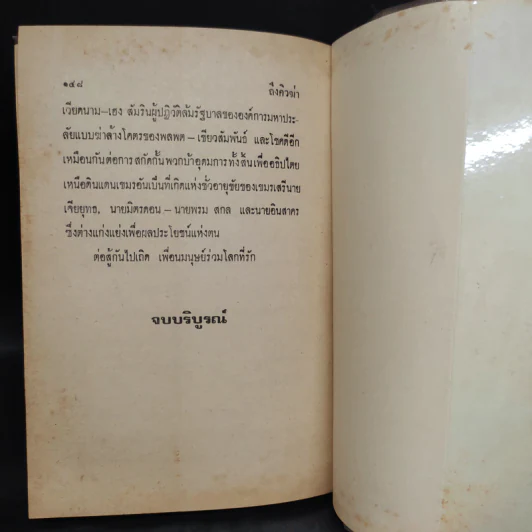 ๑๔๘ ถึงคิวฆ่า
เวียดนาม–เฮง สัมรินผู้ปฏิวัติล้มรัฐบาลขององค์การมหาประ-
ลัยแบบฆ่าล้างโคตรของพลพต – เขียวสัมพันธ์ และโชคดีอีก
เหมือนกันต่อการสกัดกั้นพวกบ้าอุดมการทั้งสิ้นเพื่ออธิปไตย
เหนือดินแดนเขมรอันเป็นที่เกิดแห่งชั่วอายุขัยของเขมรเสรีนาย
เจียยุทธ, นายมิตรดอน – นายพรม สกล และนายอินสาคร
ซึ่งต่างแก่งแย่งเพื่อผลประโยชน์แห่งตน
ต่อสู้กันไปเถิด เพื่อนมนุษย์ร่วมโลกที่รัก
จบบริบูรณ์